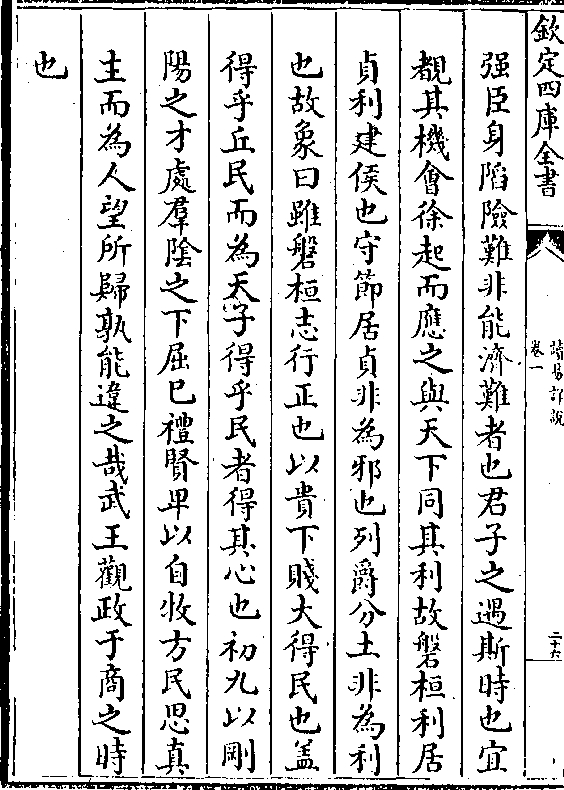 欽定四庫全書
讀易詳說
卷一
二十六
强臣身陷險難非能濟難者也君子之遇斯時也宜
覩其機會徐起而應之與天下同其利故磐桓利居
貞利建侯也守節居貞非為邪也列爵分土非為利
也故象曰雖磐桓志行正也以貴下賤大得民也盖
得乎丘民而為天子得乎民者得其心也初九以剛
陽之才處羣陰之下屈已禮賢卑以自牧方民思真
主而為人望所歸孰能違之哉武王觀政于商之時
也